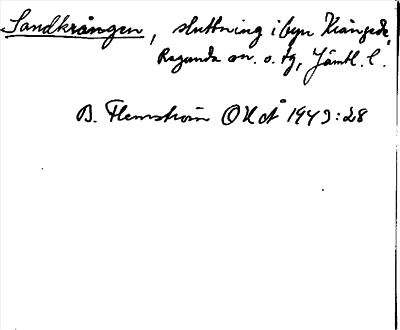 Sandkrången, sluttning i byn Krångede,
Ragunda sn. o. tg, Jämtl. l.
B. Flemström OUÅ 1949:28